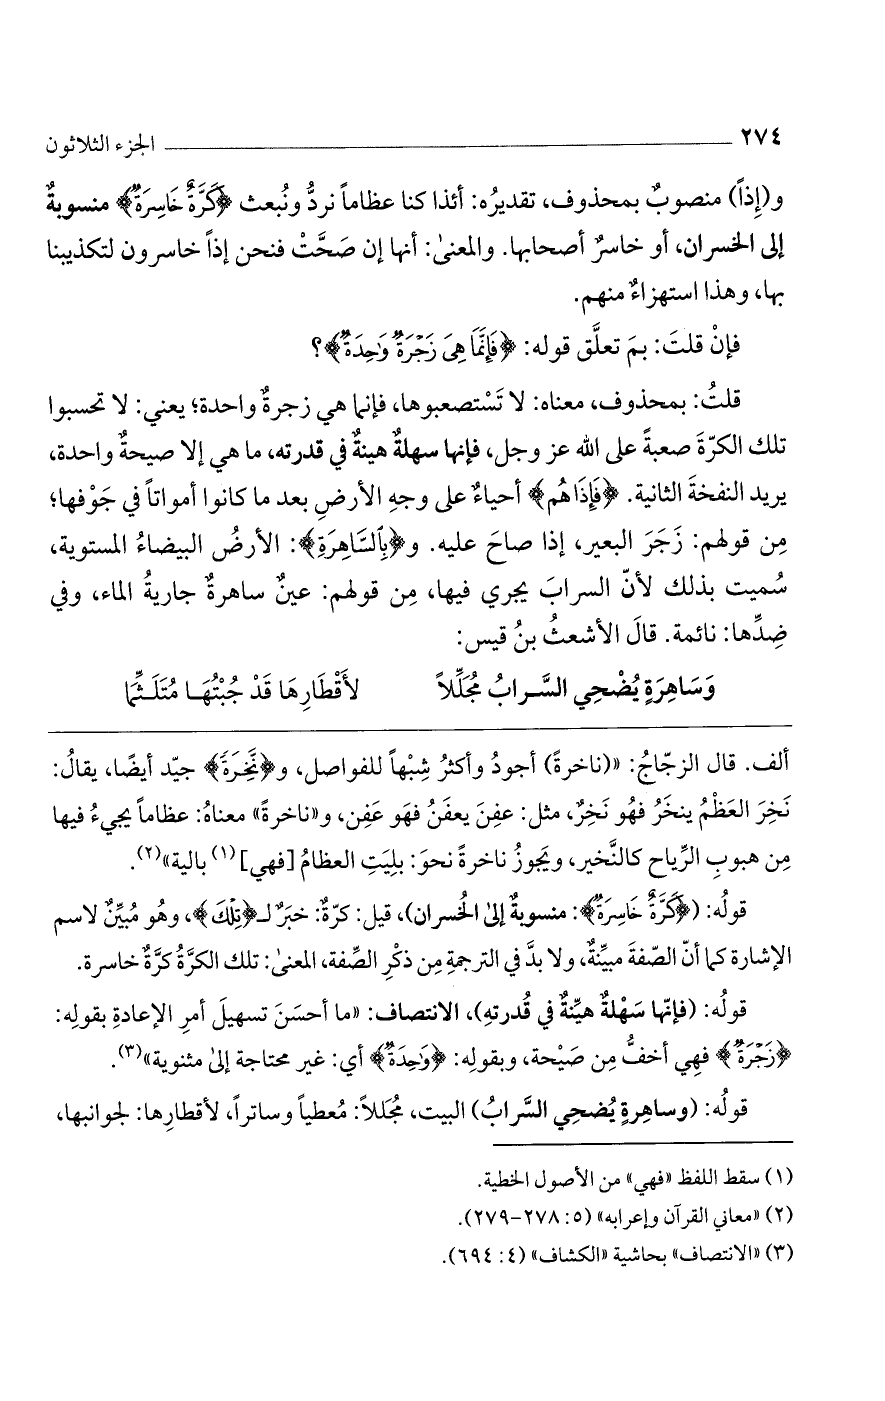 ٢٧٤ الجزء الثلاثون
و(إِذاً) منصوبٌ بمحذوف، تقديرُه: أئذا كنا عظاماً نردُّ ونُبعث ﴿كَرَّةٌ خَاسِرَةٌ﴾ منسوبةٌ
إلى الخسران، أو خاسرٌ أصحابها. والمعنىٰ: أنها إن صَحَّتْ فنحن إذاً خاسرون لتكذيبنا
بها، وهذا استهزاءٌ منهم.
فإنْ قلتَ: بمَ تعلَّق قوله: ﴿فَإِنَّمَا هِىَ زَجْرَةٌ وَٰحِدَةٌ﴾؟
قلتُ: بمحذوف، معناه: لا تَسْتصعبوها، فإنما هي زجرةٌ واحدة؛ يعني: لا تحسبوا
تلك الكرّةَ صعبةً على الله عز وجل، فإنها سهلةٌ هينةٌ في قدرته، ما هي إلا صيحةٌ واحدة،
يريد النفخةَ الثانية. ﴿فَإِذَا هُم﴾ أحياءٌ على وجهِ الأرضِ بعد ما كانوا أمواتاً في جَوْفها؛
مِن قولهم: زَجَرَ البعير، إذا صاحَ عليه. و﴿بِٱلسَّاهِرَةِ﴾: الأرضُ البيضاءُ المستوية،
سُميت بذلك لأنّ السرابَ يجري فيها، مِن قولهم: عينٌ ساهرةٌ جاريةُ الماء، وفي
ضِدِّها: نائمة. قالَ الأشعثُ بنُ قيس:
وَسَاهِرَةٍ يُضْحِي السَّرابُ مُجَلِّلاً لأَقْطَارِهَا قَدْ جُبْتُهَا مُتَلَثِّمَا
ألف. قال الزجّاجُ: «(ناخرةً) أجودُ وأكثرُ شِبْهاً للفواصل، و﴿نَّخِرَةً﴾ جيّد أيضًا، يقالُ:
نَخِرَ العَظْمُ ينخَرُ فهُو نَخِرٌ، مثل: عفِنَ يعفَنُ فهَو عَفِن، و«ناخرةً» معناهُ: عظاماً يجيءُ فيها
مِن هبوبِ الرِّياح كالنَّخير، ويَجوزُ ناخرةً نحوَ: بلِيَتِ العظامُ [فهي](١) بالية»(٢).
قولُه: (﴿كَرَّةٌ خَاسِرَةٌ﴾: منسوبةٌ إلىٰ الخُسران)، قيل: كرّةٌ: خبَرٌ لـ﴿تِلْكَ﴾، وهُو مُبيِّنٌ لاسم
الإشارة كما أنّ الصّفةَ مبيِّنةٌ، ولا بدَّ في الترجمةِ مِن ذكْرِ الصِّفة، المعنىٰ: تلك الكرَّةُ كرَّةٌ خاسرة.
قولُه: (فإنّها سَهْلةٌ هيِّنةٌ في قُدرتهِ)، الانتصاف: «ما أحسَنَ تسهيلَ أمرِ الإعادةِ بقولِه:
﴿زَجْرَةٌ﴾ فهِي أخفُّ مِن صَيْحة، وبقولِه: ﴿وَٰحِدَةٌ﴾ أي: غير محتاجة إلىٰ مثنوية»(٣).
قولُه: (وساهِرةٍ يُضحِي السَّرابُ) البيت، مُجَللاً: مُعطياً وساتراً، لأقطارِها: لجوانبها،
(١) سقط اللفظ «فهي» من الأصول الخطية.
(٢) «معاني القرآن وإعرابه» (٥: ٢٧٨-٢٧٩).
(٣) «الانتصاف» بحاشية «الكشاف» (٤: ٦٩٤).